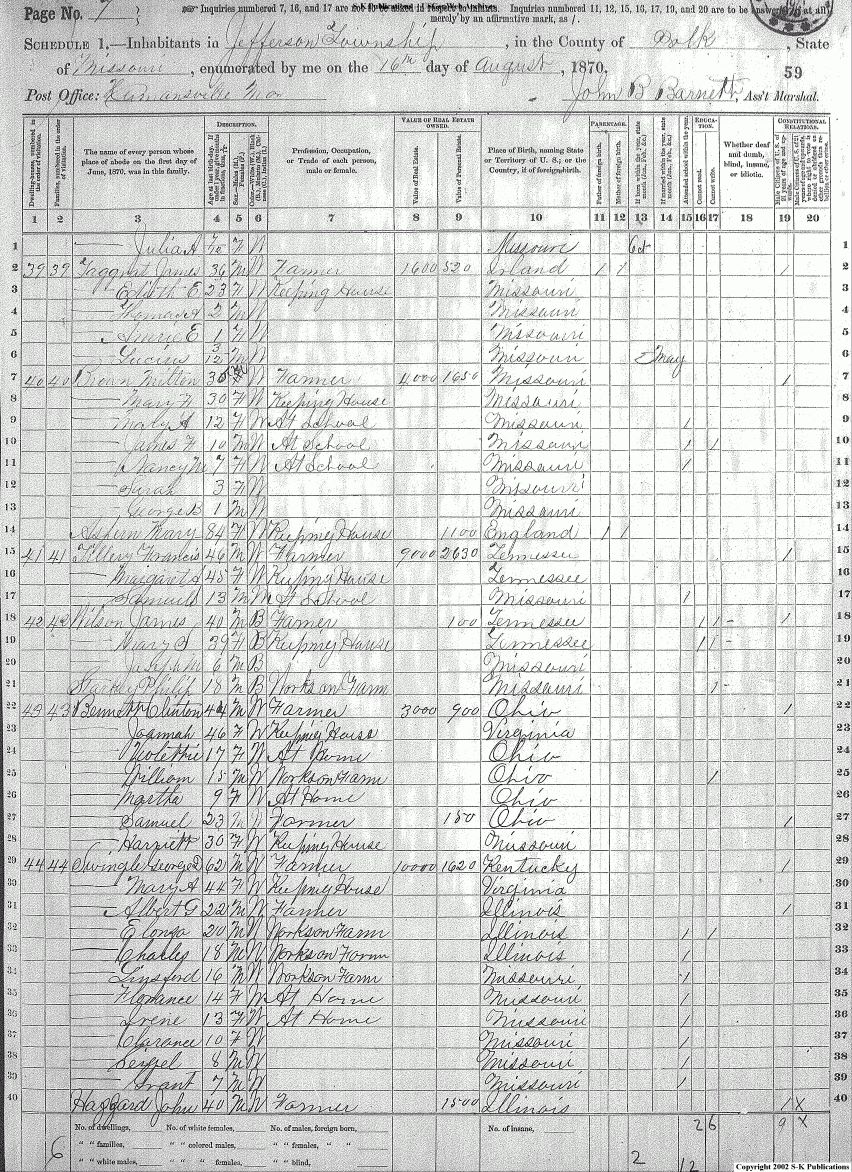 Page No. 7
Inquiries numbered 7, 16, and 17 are not to be asked in respect to infants. Inquiries numbered 11, 12, 15, 16, 17, 19, and 20 are to be answered (if at all)
merely by an affirmative mark, as /.
SCHEDULE 1.—Inhabitants in Jefferson Township, in the County of Polk, State
of Missouri, enumerated by me on the 16th day of August, 1870. 59
Post Office: Humansville Mo John B Barnett, Ass't Marshal.
DESCRIPTION. VALUE OF REAL ESTATE OWNED. PARENTAGE. EDUCATION. CONSTITUTIONAL RELATIONS.
The name of every person whose place of abode on the first day of June, 1870, was in this family.
Profession, Occupation, or Trade of each person, male or female.
Value of Real Estate.
Value of Personal Estate.
Place of Birth, naming State or Territory of U. S.; or the Country, if of foreign birth.
Father of foreign birth.
Mother of foreign birth.
Attended school within the year.
Cannot read.
Cannot write.
Whether deaf and dumb, blind, insane, or idiotic.
1 2 3 4 5 6 7 8 9 10 11 12 13 14 15 16 17 18 19 20
1 — Julia A F W Missouri Oct 1
2 39 39 Taggart James 36 M W Farmer 1600 520 Irland / / / 2
3 — Edith E 23 F W Keeping House Missouri 3
4 — A 2 M W Missouri 4
5 — E 1 F W Missouri 5
6 — Lucius 3/12 M W Missouri May 6
7 40 40 Brown Milton 35 M W Farmer 4000 1650 Missouri / 7
8 — Mary F 30 F W Keeping House Missouri 8
9 — Mary A 12 F W At School Missouri / 9
10 — James F 10 M W At School Missouri / / 10
11 — Nancy M 7 F W At School Missouri / 11
12 — Sarah 3 F W Missouri 12
13 — George B 1 M W Missouri 13
14 Mary 84 F W Keeping House 1100 England / / 14
15 41 41 Tillery Francis 46 M W Farmer 9000 2630 Tennessee / 15
16 — Margaret A 45 F W Keeping House Tennessee 16
17 — Samuel S 13 M W At School Missouri / 17
18 42 42 Wilson James 40 M B Farmer 100 Tennessee / / - / 18
19 — Mary S 39 F B Keeping House Tennessee / / - 19
20 — M 6 M B Missouri 20
21 Philip 18 M B Works on Farm Missouri / - 21
22 43 43 Bennett Clinton 44 M W Farmer 3000 900 Ohio / 22
23 — Joannah 46 F W Keeping House Virginia 23
24 — 17 F W At Home Ohio 24
25 — William 15 M W Works on Farm Ohio / 25
26 — Martha 9 F W At Home Ohio 26
27 — Samuel 23 M W Farmer 150 Ohio / 27
28 — Harriett 30 F W Keeping House Missouri 28
29 44 44 Swingle George D 62 M W Farmer 10000 1620 Kentucky / 29
30 — Mary A 44 F W Keeping House Virginia 30
31 — Albert G 22 M W Farmer Illinois / 31
32 — Elonzo 20 M W Works on Farm Illinois / / 32
33 — Charles 18 M W Works on Farm Illinois / 33
34 — Linsford 16 M W Works on Farm Missouri / 34
35 — Florance 14 F W At Home Missouri / 35
36 — Irene 13 F W At Home Missouri / 36
37 — Clarance 10 F W Missouri / 37
38 — 8 M W Missouri / 38
39 — Grant 7 M W Missouri / 39
40 Haggard John 40 M W Farmer 1500 Illinois / X 40
No. of dwellings, No. of white females, No. of males, foreign born, No. of insane, 2 6 9 X
" " families, " " colored males, " " females, " "
6 " " white males, " " " females, " " blind, 2 12
Copyright 2002 S-K Publications